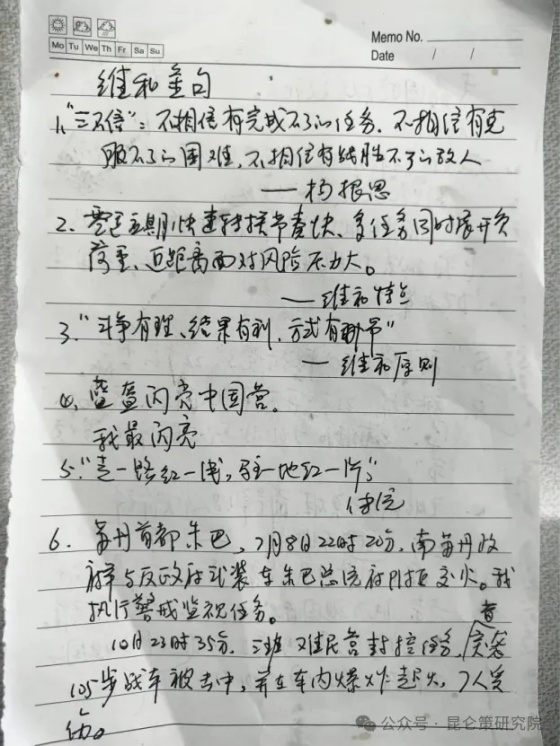 Memo No.
Mo Tu We Th Fr Sa Su
Date / /
维和金句
1、"三不信":不相信有完成不了的任务,不相信有克
服不了的困难,不相信有战胜不了的敌人
——杨根思
2、任务同时展开负
荷重、近距离面对风险压力大。
——维和特点
3、"斗争有理、结果有利、方式有节"
——维和原则
4、蓝盔闪亮中国营。
我最闪亮
5、"走一路红一线,驻一地红一片"
传统
6、苏丹首都朱巴,7月8日22时20分,南苏丹政
府军与反政府武装在朱巴总统府附近交火。我
执行警戒监视任务。
10日23时35分,三班难民营封控任务,突袭
105步战车被击中,并在车内爆炸起火,7人受
伤。
公众号·昆仑策研究院